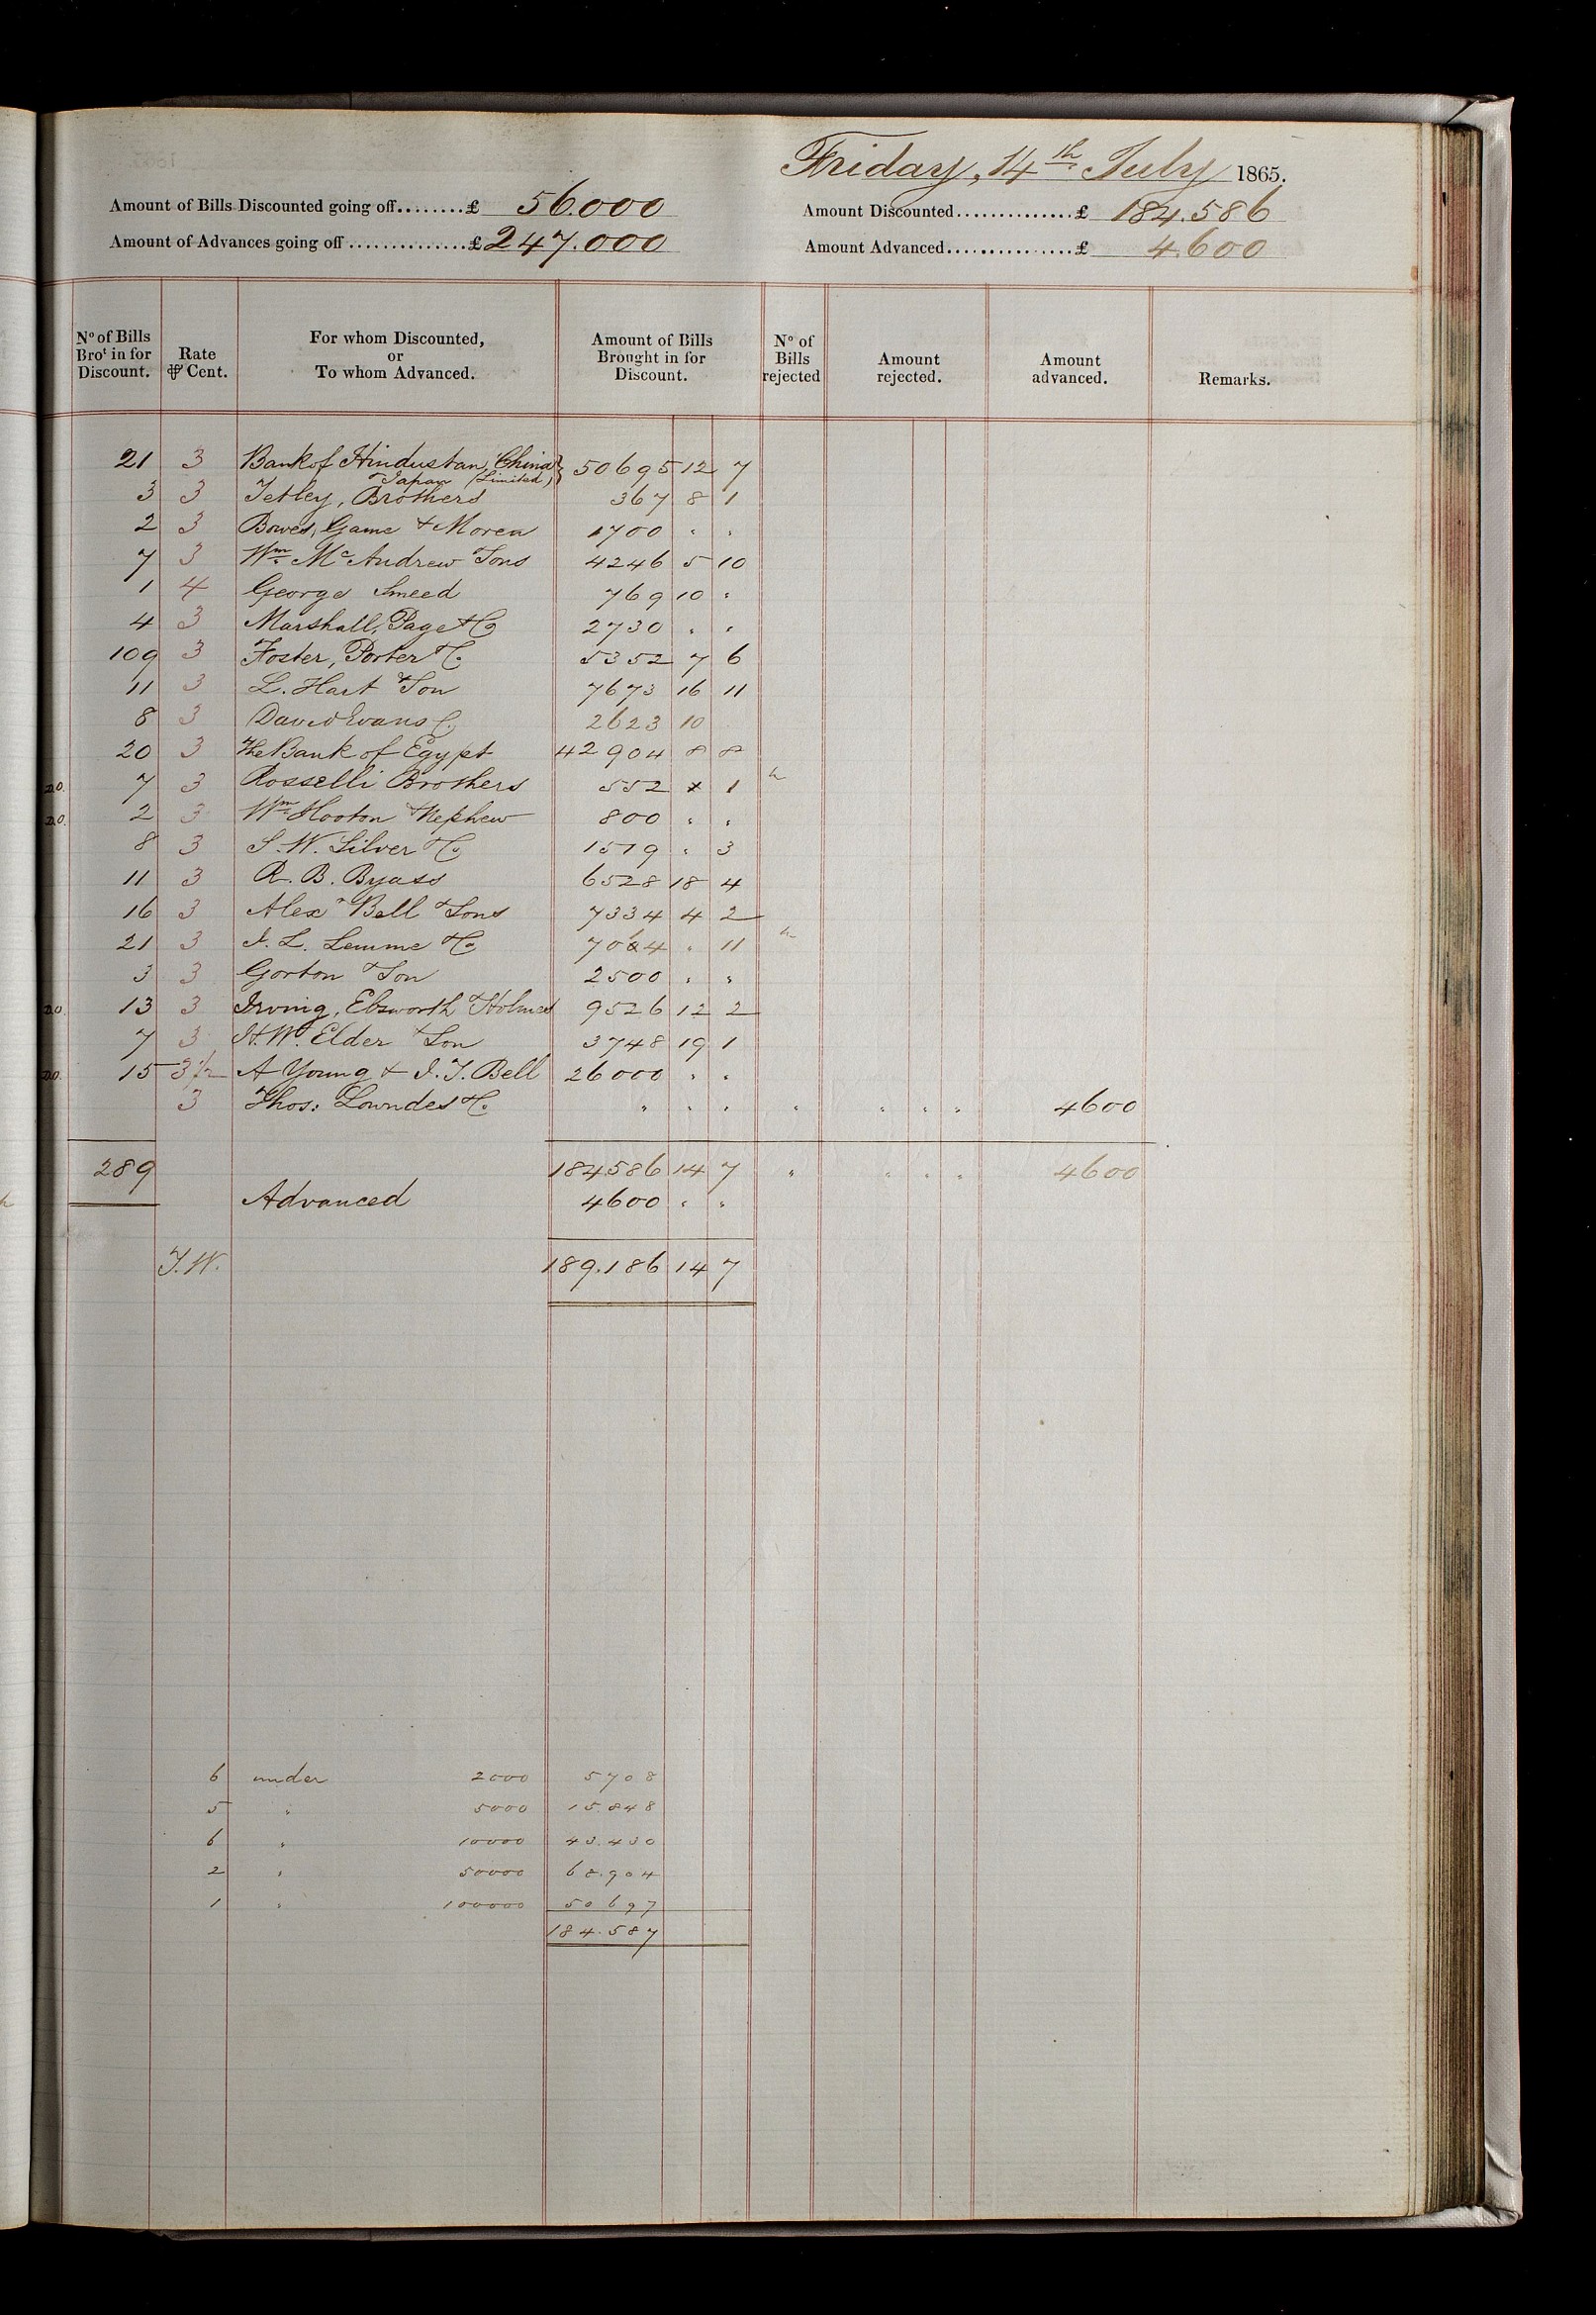 Friday, 14th July 1865.
Amount of Bills Discounted going off........£ 56.000 Amount Discounted..............£ 184.586
Amount of Advances going off..............£ 247.000 Amount Advanced...............£ 4.600
No of Bills Brot in for Discount. Rate ⅌ Cent. For whom Discounted, or To whom Advanced. Amount of Bills Brought in for Discount. No of Bills rejected Amount rejected. Amount advanced. Remarks.
21 3 Bank of Hindustan, China } 50695 12 7
& Japan (Limited)
3 3 Tetley, Brothers 367 8 1
2 3 Bowes, Game & Moren 1700 " "
7 3 Wm McAndrew & Sons 4246 5 10
1 4 George Smeed 769 10 "
4 3 Marshall, Page & Co 2730 " "
109 3 Foster, Porter & Co 5352 7 6
11 3 L. Hart & Son 7673 16 11
8 3 David Evans Co 2623 10
20 3 The Bank of Egypt 42904 8 8
Do. 7 3 Rosselli Brothers 552 x 1
Do. 2 3 Wm Hooton & Nephew 800 " "
8 3 S. W. Silver & Co 1519 " 3
11 3 R. B. Byass 6528 18 4
16 3 Alexr Bell & Sons 7334 4 2
21 3 J. L. Lemme & Co 7014 " 11
3 3 Gorton & Son 2500 " "
Do. 13 3 Irving, Ebsworth & Holmes 9526 12 2
7 3 H. W. Elder & Son 3748 19 1
Do. 15 3½ A Young & J. T. Bell 26000 " "
3 Thos: Lowndes & Co " " " " " " " 4600
289 184586 14 7 " " " " 4600
Advanced 4600 " "
T. W. 189.186 14 7
6 under 2000 5708
5 " 5000 15.848
6 " 10000 43.430
2 " 50000 68.904
1 " 100000 50697
184.587